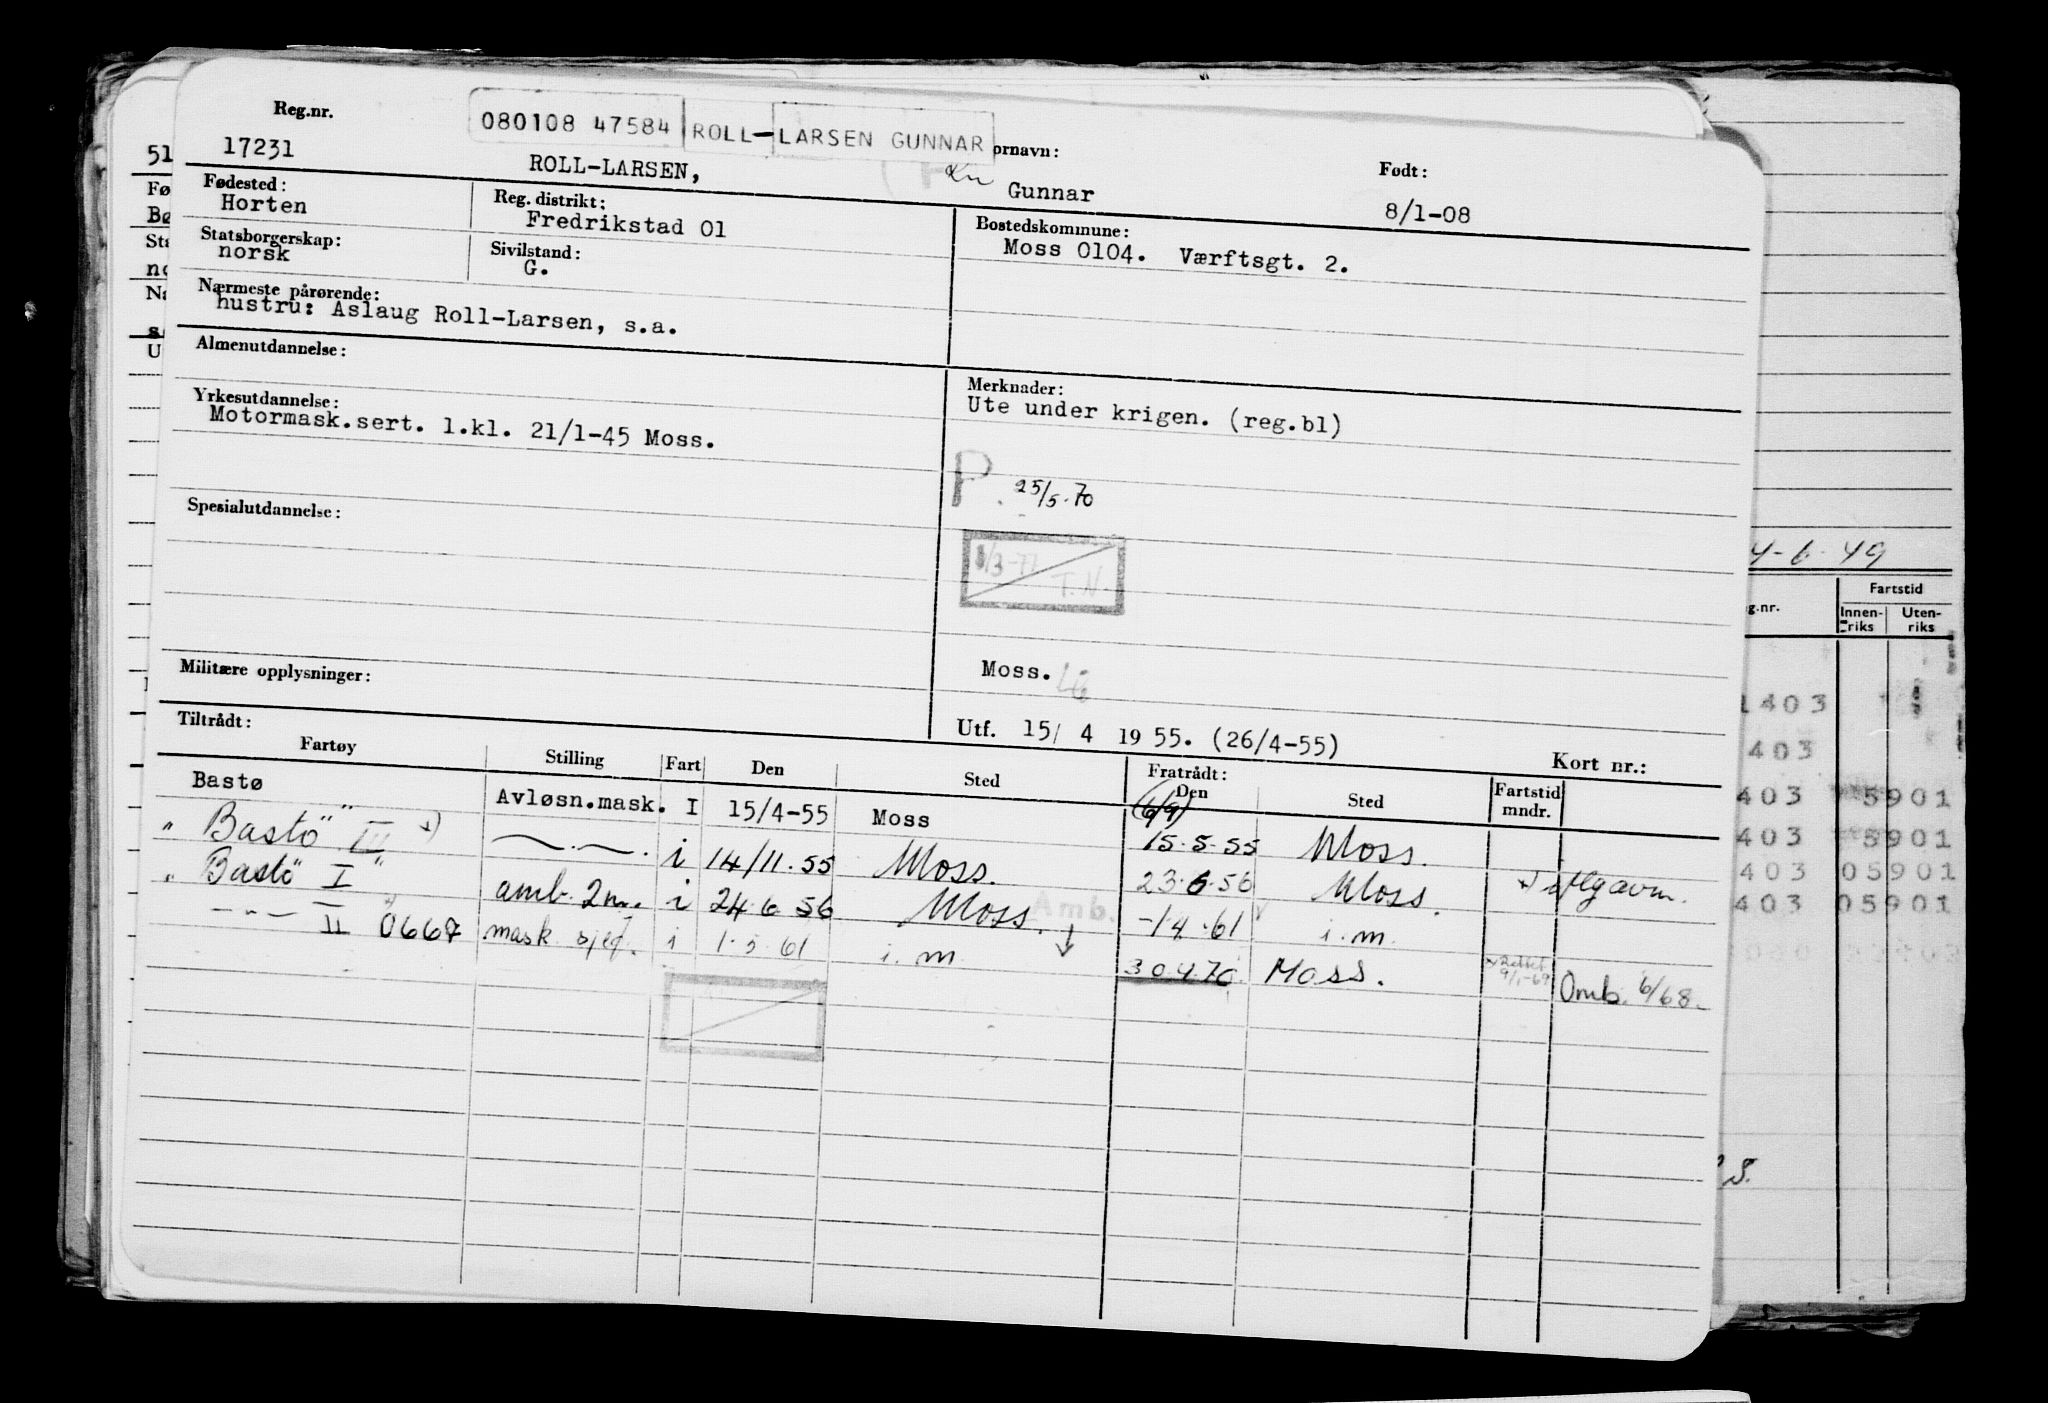 Reg.nr.
080108 47584 ROLL-LARSEN GUNNAR
17231
ROLL-LARSEN,
ornavn:
Gunnar
Født:
8/1-08
Fødested:
Horten
Reg. distrikt:
Fredrikstad 01
Bostedskommune:
Moss 0104. Værftsgt. 2.
Statsborgerskap:
norsk
Sivilstand:
G.
Nærmeste pårørende:
hustru: Aslaug Roll-Larsen, s.a.
Almenutdannelse:
Merknader:
Ute under krigen. (reg.bl)
Yrkesutdannelse:
Motormask.sert. 1.kl. 21/1-45 Moss.
P. 25/5.70
Spesialutdannelse:
1/3-77
T.N.
Militære opplysninger:
Moss.
Utf. 15/ 4 19 55. (26/4-55)
Kort nr.:
Tiltrådt:
Fratrådt:
Fartøy Stilling Fart Den Sted Den Sted Fartstid mndr.
(6/9)
Bastø Avløsn.mask. I 15/4-55 Moss 15.5.55 Moss.
"Bastö III" x) —.—. i 14/11.55 Moss. 23.6.56 Moss. x) utg avm.
"Bastö I" amb. 2m. i 24.6.56 Moss. -1.4.61 i.m.
Amb.
—"— II 0667 mask. sjef. i 1.5.61 i.m. 30.4.70. Moss. Omb. 6/68.
51
Fø
Bø
Sta
no
Næ
s
U
4-6-49
g.nr.
Fartstid
Innen-riks
Uten-riks
1403
403
403 5901
403 5901
403 05901
403 05901